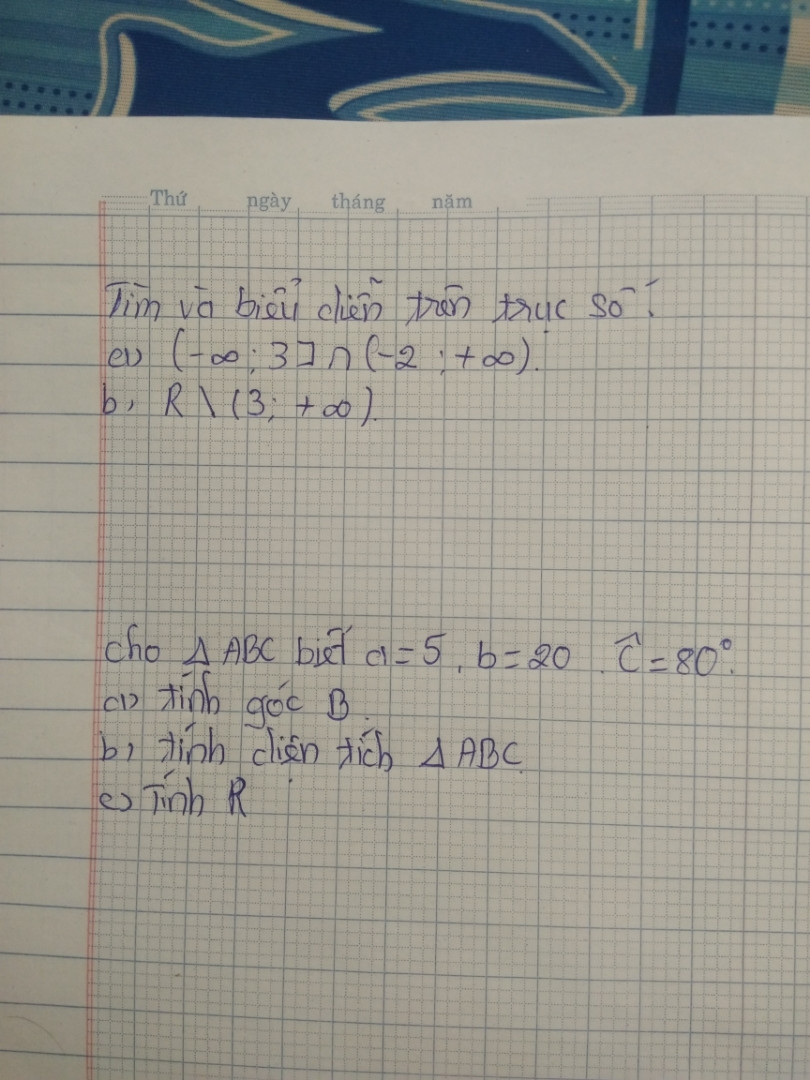 Thứ ngày tháng năm
Tìm và biểu diễn trên trục số:
a) (-∞; 3] ∩ (-2; +∞).
b, R \ (3; +∞).
cho Δ ABC biết a = 5, b = 20. Ĉ = 80°.
a) tính góc B.
b, tính diện tích Δ ABC
c) Tính R